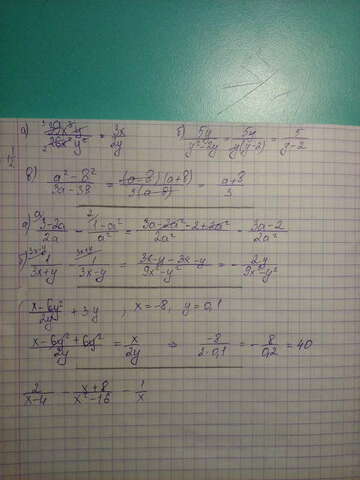 а) 39x³y / 26x²y² = 3x / 2y б) 5y / y²-2y = 5y / y(y-2) = 5 / y-2
в) a²-b² / 3a-3b = (a-b)(a+b) / 3(a-b) = a+b / 3
а) 3-2a / 2a - 1-a² / a² = 3a-2a²-2+2a² / 2a² = 3a-2 / 2a²
б) 1 / 3x+y - 1 / 3x-y = 3x-y-3x-y / 9x²-y² = - 2y / 9x²-y²
x-6y² / 2y + 3y , x=-8, y=0,1
x-6y²+6y² / 2y = x / 2y ⇒ -8 / 2·0,1 = - 8 / 0,2 = 40
2 / x-4 - x+8 / x²-16 - 1 / x